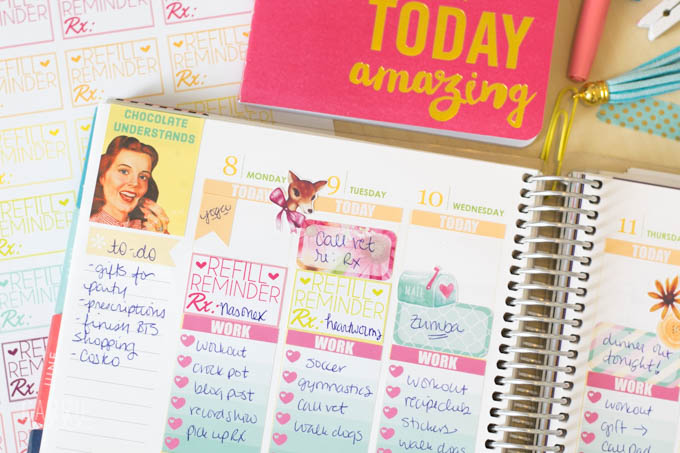 REFILL
REMINDER
Rx:
REFILL
REMINDER
Rx:
REFILL
REMINDER
Rx:
TODAY
amazing
CHOCOLATE
UNDERSTANDS
to-do
- gifts for
party
- prescriptions
- finish BTS
shopping
- Costco
8 MONDAY
TODAY
yoga
REFILL
REMINDER
Rx: nasonex
WORK
workout
crock pot
blog post
record show
pick up RX
9 TUESDAY
TODAY
Call vet
re: Rx
REFILL
REMINDER
Rx: heartworm
WORK
soccer
gymnastics
call vet
walk dogs
10 WEDNESDAY
TODAY
MAIL
Zumba
WORK
workout
recipe club
stickers
walk dogs
11 THURSDAY
TODAY
dinner out
tonight!
WORK
workout
gift →
call Dad
JUNE